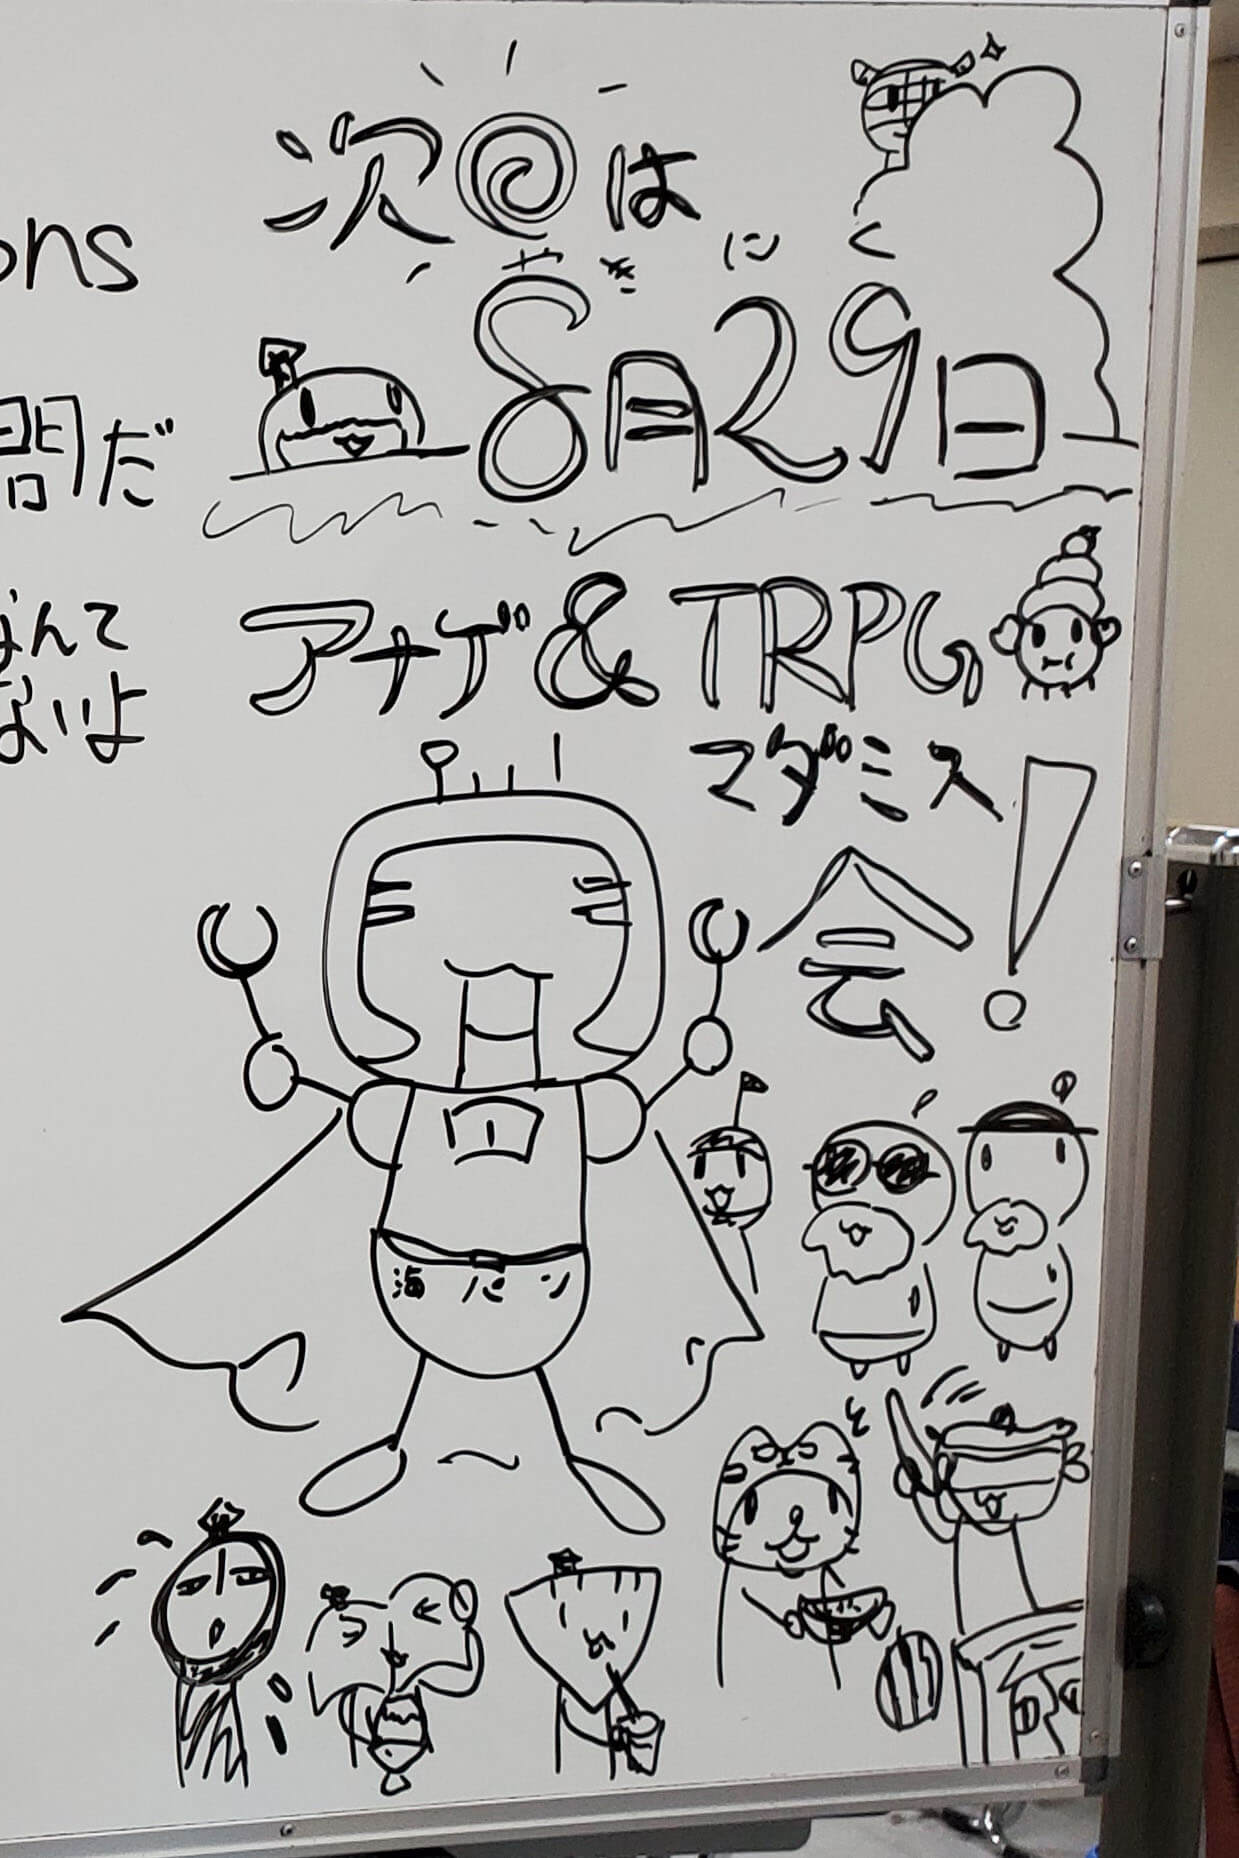 ons
間だ
なんて
ないよ
次回は
やきにく
8月29日
アナゲ&TRPG
マダミス
会!
海パン